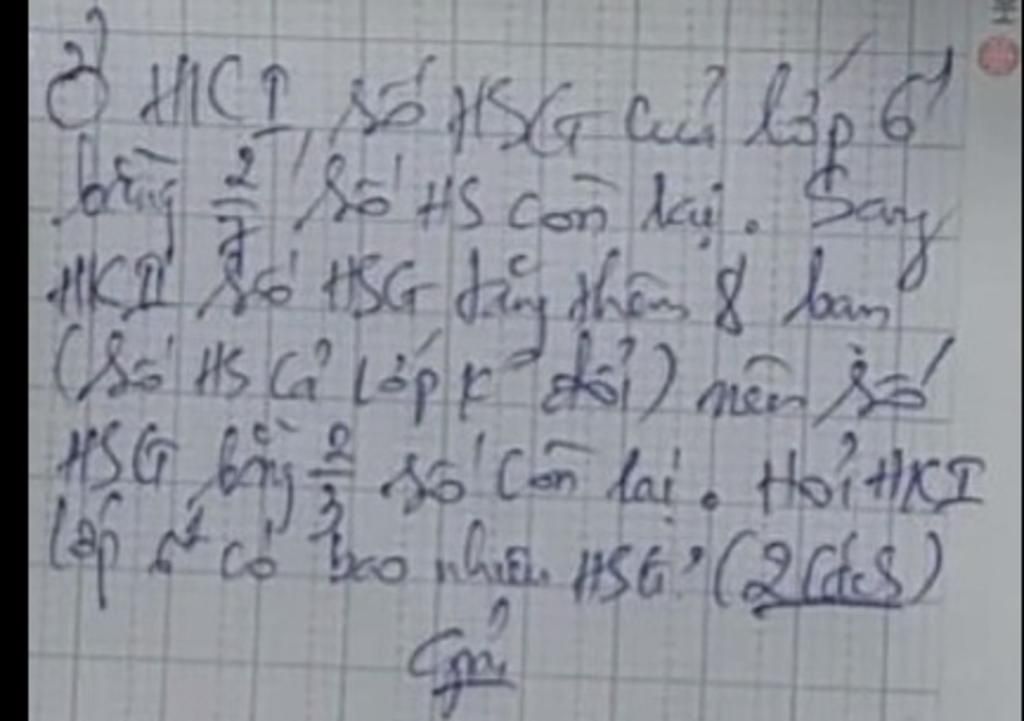 Ở HKI, số HSG của lớp 6¹
bằng 2/7 số HS còn lại. Sang
HKII số HSG tăng thêm 8 bạn
(Số HS cả lớp k° đổi) nên số
HSG bằng 2/3 số còn lại. Hỏi HKI
lớp 6¹ có bao nhiêu HSG? (2
Giải